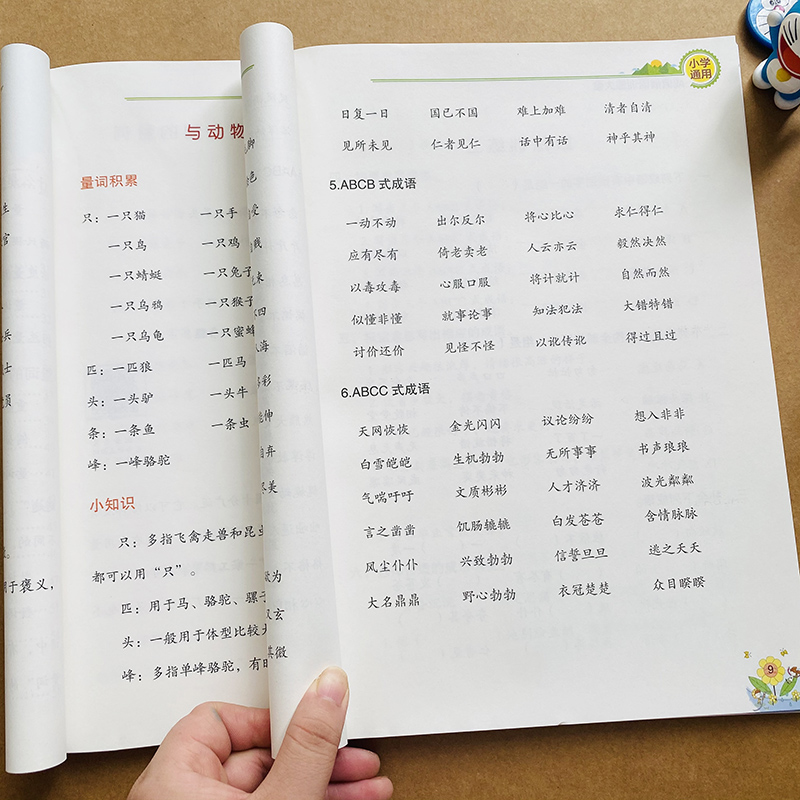 生
官
兵
士
员
用于褒义，
与动物
量词积累
只：一只猫 一只手
一只鸟 一只鸡
一只蜻蜓 一只兔子
一只乌鸦 一只猴子
一只乌龟 一只蜜蜂
匹：一匹狼 一匹马
头：一头驴 一头牛
条：一条鱼 一条虫
峰：一峰骆驼
小知识
只：多指飞禽走兽和昆虫
都可以用“只”。
匹：用于马、骆驼、骡子
头：一般用于体型比较大
峰：多指单峰骆驼，有时
脚
色
受
贱
来
四
海
彩
伸
自弃
尽美
为
又玄
其微
小学
通用
日复一日 国已不国 难上加难 清者自清
见所未见 仁者见仁 话中有话 神乎其神
5.ABCB 式成语
一动不动 出尔反尔 将心比心 求仁得仁
应有尽有 倚老卖老 人云亦云 毅然决然
以毒攻毒 心服口服 将计就计 自然而然
似懂非懂 就事论事 知法犯法 大错特错
讨价还价 见怪不怪 以讹传讹 得过且过
6.ABCC 式成语
天网恢恢 金光闪闪 议论纷纷 想入非非
白雪皑皑 生机勃勃 无所事事 书声琅琅
气喘吁吁 文质彬彬 人才济济 波光粼粼
言之凿凿 饥肠辘辘 白发苍苍 含情脉脉
风尘仆仆 兴致勃勃 信誓旦旦 逃之夭夭
大名鼎鼎 野心勃勃 衣冠楚楚 众目睽睽
9